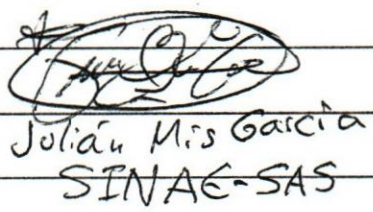 Julián Mis García
SINAE-SAS